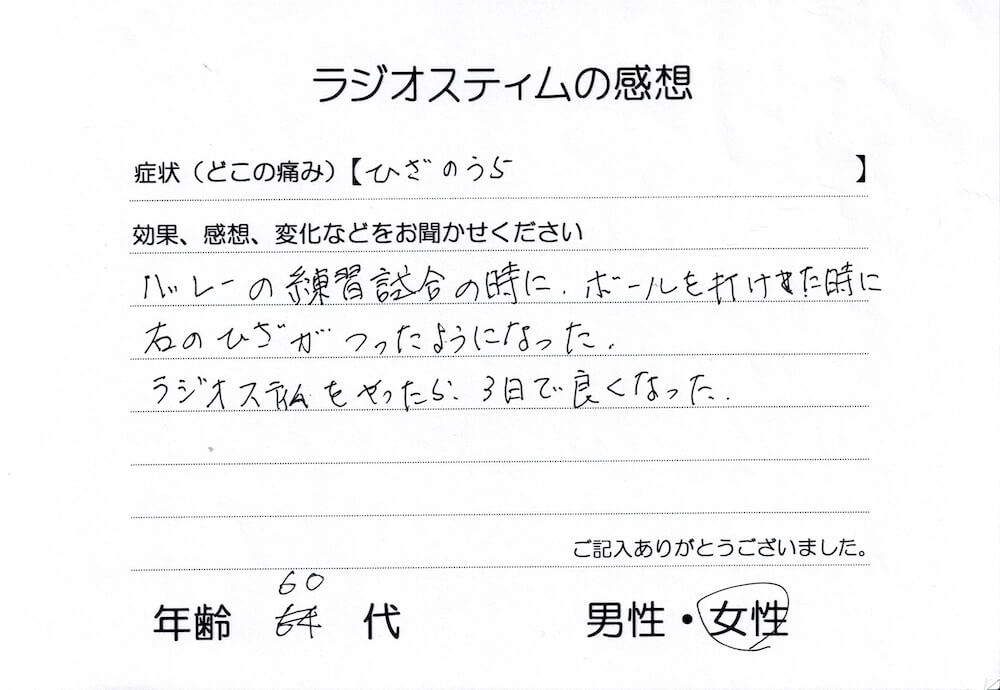 ラジオスティムの感想
症状（どこの痛み）【ひざのうら】
効果、感想、変化などをお聞かせください
バレーの練習試合の時に、ボールを打けた時に
右のひざがつったようになった。
ラジオスティムをやったら、3日で良くなった。
ご記入ありがとうございました。
60
年齢 64 代 男性・女性